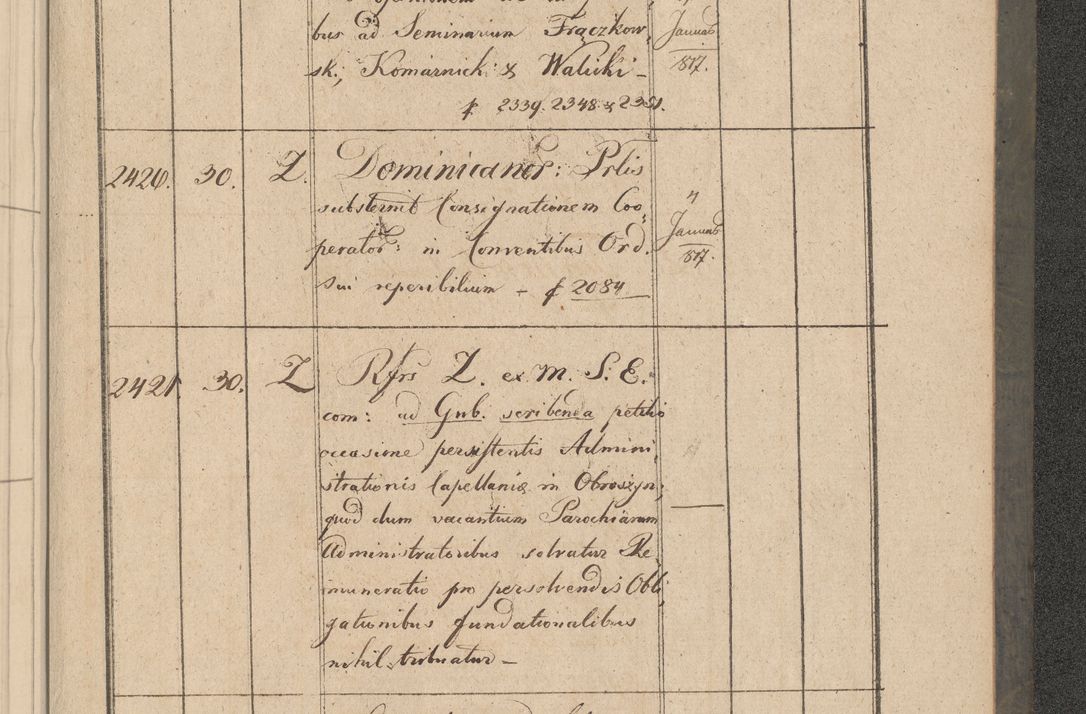 bus ad Seminarium Frączkow,
sk,; Komarnicki & Walicki -
p. 2339. 2348. & 2351.
Januar
817.
2420. 30. Z. Dominican̄os: Prlis
substernit Consignationem Coo,
perator: in Conventibus Ord.
Sui reperibilium - p 2084
4
Januar
817.
2421. 30. Z Rfrs Z. ex M. S. E.
com: ad Gub. scribenda petitio
occasione persistentis Admini,
strationis Capellaniæ in Obroszyn;
quod dum vacantium Parochiarum
Administratoribus solvatur Re
muneratio pro persolvendis Obli,
gationibus fundationalibus
nihil tribuatur -